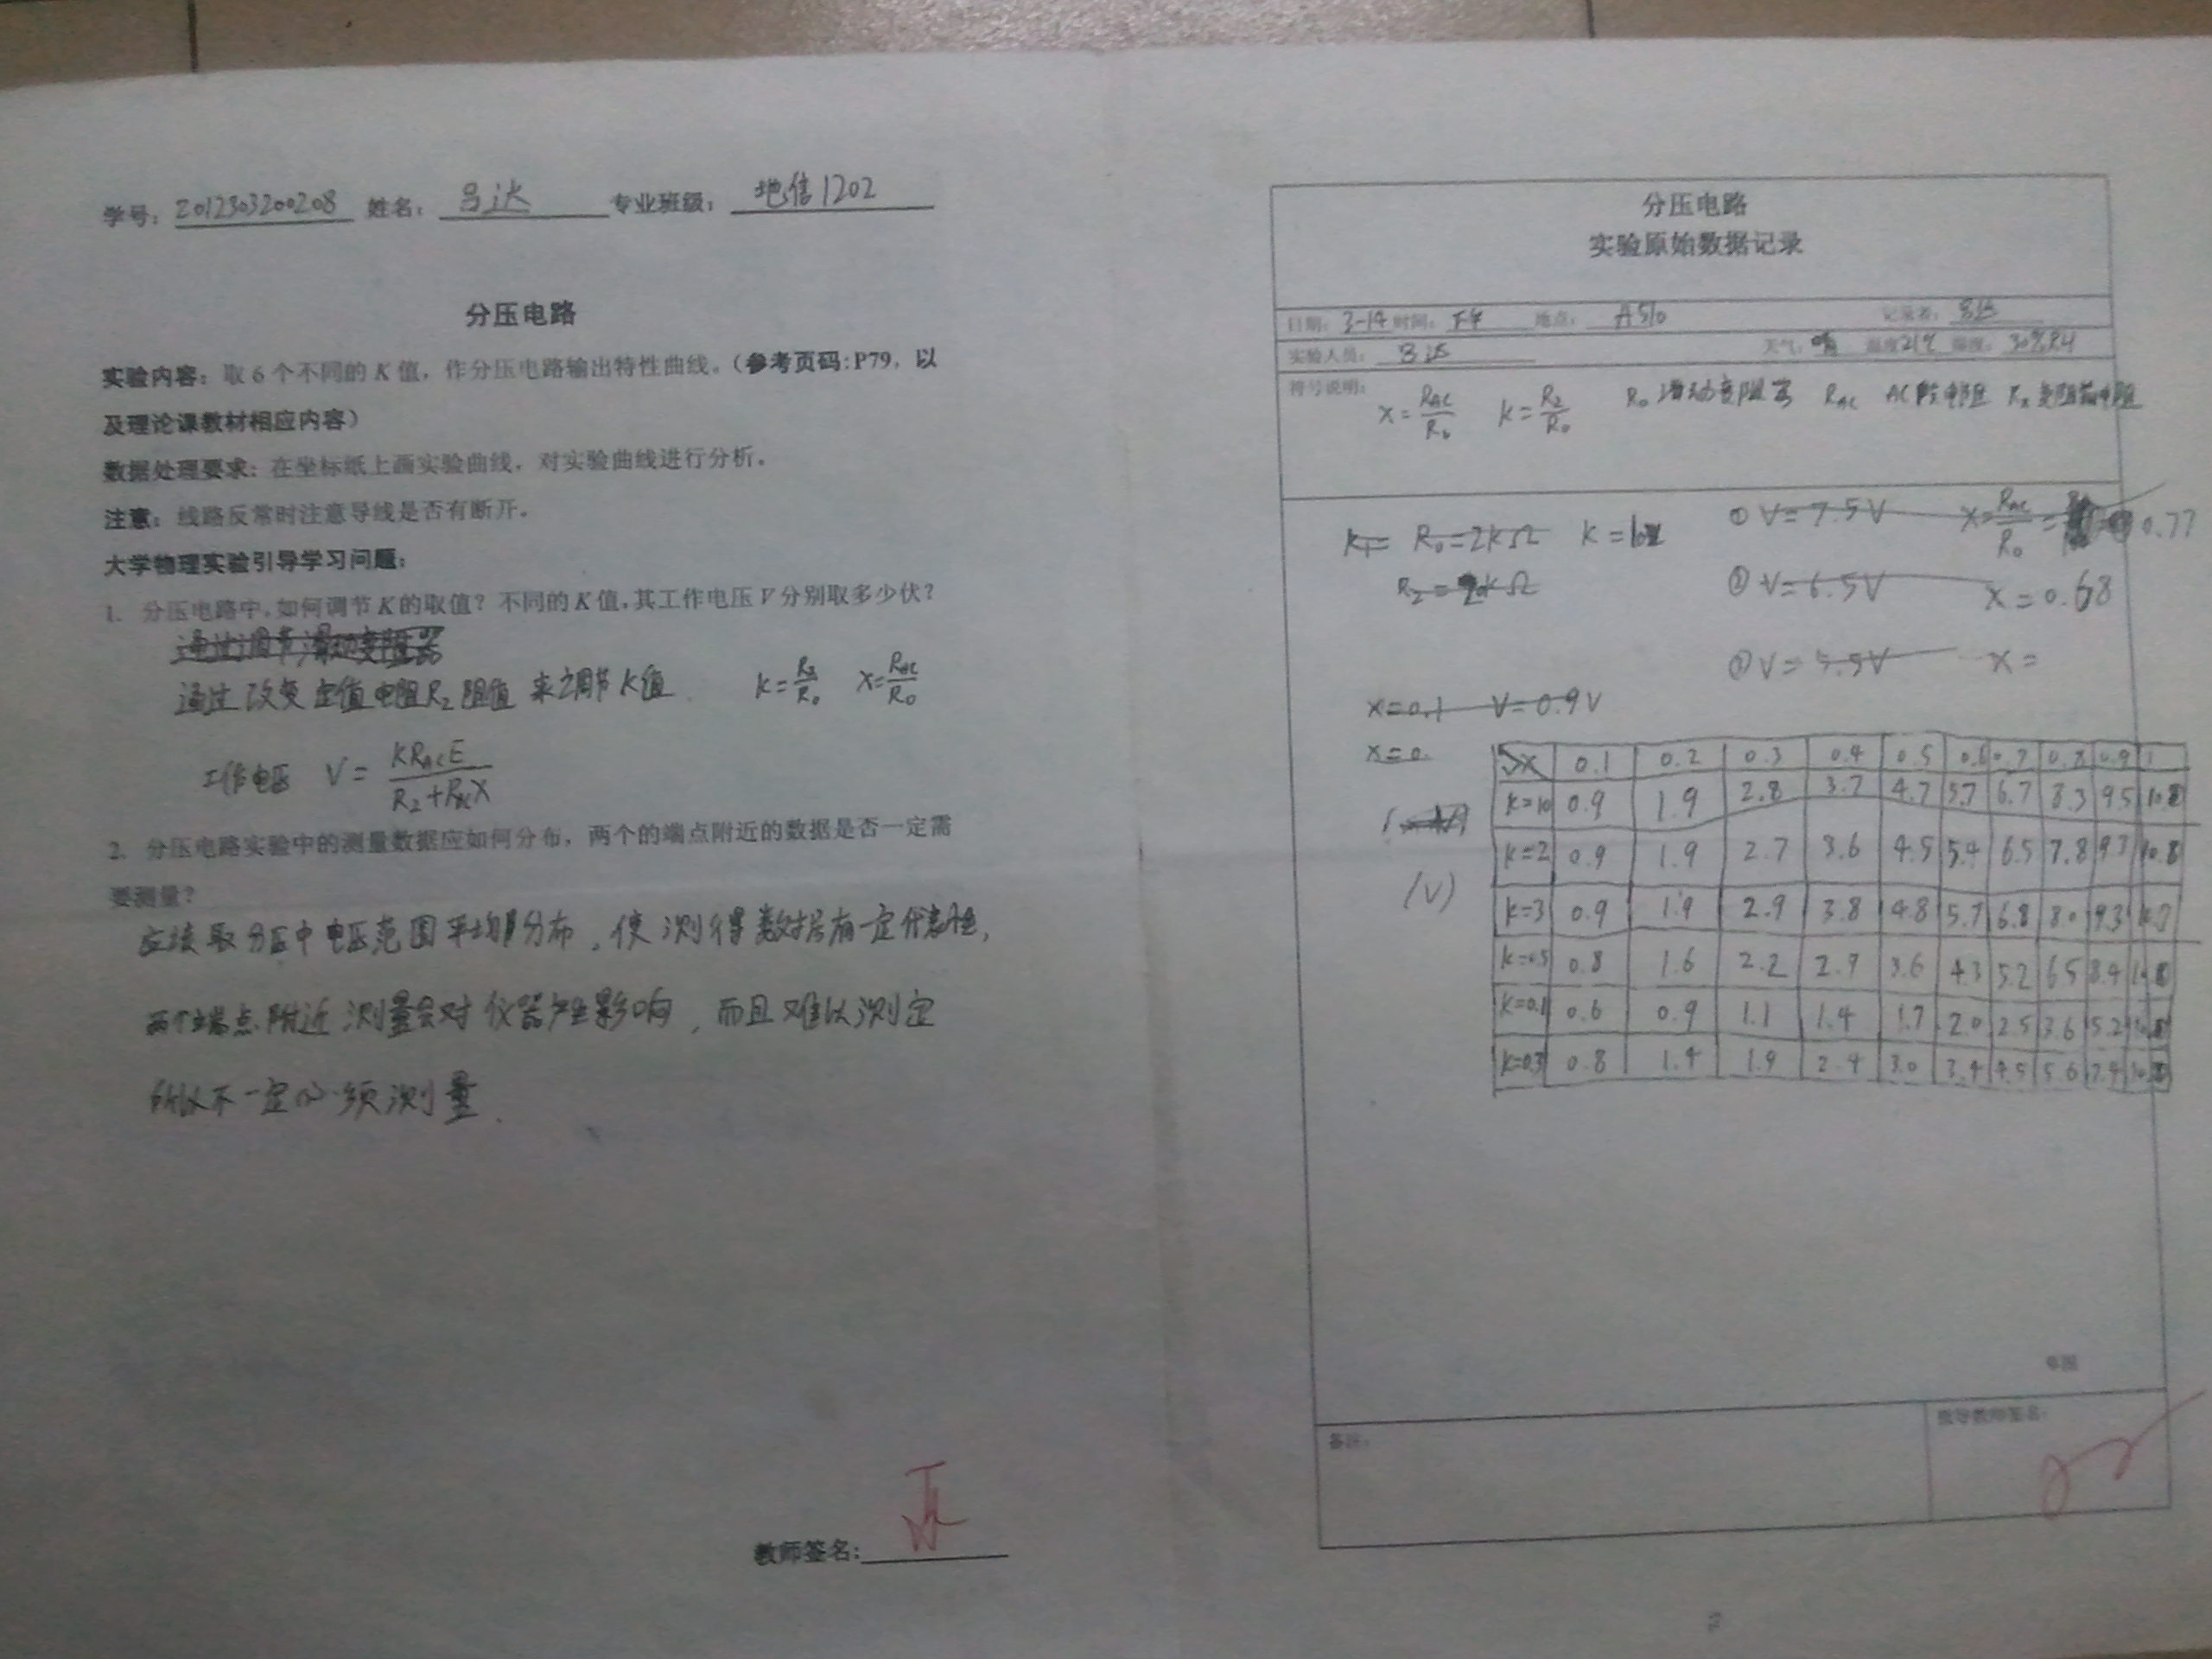 学号：2012303200208 姓名：吕达 专业班级：地信1202
分压电路
实验内容：取 6 个不同的 K 值，作分压电路输出特性曲线。（参考页码：P79，以
及理论课教材相应内容）
数据处理要求：在坐标纸上画实验曲线，对实验曲线进行分析。
注意：线路反常时注意导线是否有断开。
大学物理实验引导学习问题：
1. 分压电路中，如何调节 K 的取值？不同的 K 值，其工作电压 V 分别取多少伏？
通过调节滑动变阻器
通过改变定值电阻R₂阻值来调节K值 K=R₂/R₀ X=R_AC/R₀
工作电压 V=KR_ACE/(R₂+R_ACX)
2. 分压电路实验中的测量数据应如何分布，两个的端点附近的数据是否一定需
要测量？
应读取分压中电压范围平均分布，使测得数据有一定代表性，
两个端点附近测量会对仪器产生影响，而且难以测定
所以不一定必须测量．
教师签名：
分压电路
实验原始数据记录
日期：3-14 时间：下午 地点：A510 记录者：吕达
实验人员：吕达 天气：晴 温度21℃ 湿度：30%RH
符号说明：
X=R_AC/R₀ K=R₂/R₀ R₀ 滑动变阻器 R_AC AC段电阻
K₁= R₀=2KΩ K=10 ① V=7.5V X=R_AC/R₀= =0.77
R₂= KΩ ② V=6.5V X=0.68
③ V=5.5V X=
X=0.1 V=0.9V
X=0.
(V)
X 0.1 0.2 0.3 0.4 0.5 0.6 0.7 0.8 0.9 1
K=10 0.9 1.9 2.8 3.7 4.7 5.7 6.7 8.3 9.5 10.8
K=2 0.9 1.9 2.7 3.6 4.5 5.4 6.5 7.8 9.3 10.8
K=3 0.9 1.9 2.9 3.8 4.8 5.7 6.8 8.0 9.3
K=0.5 0.8 1.6 2.2 2.9 3.6 4.3 5.2 6.5 8.4 10.8
K=0.1 0.6 0.9 1.1 1.4 1.7 2.0 2.5 3.6 5.2 10.8
K=0.3 0.8 1.4 1.9 2.4 3.0 3.4 4.5 5.6 7.4 10.8
备注：
指导教师签名：